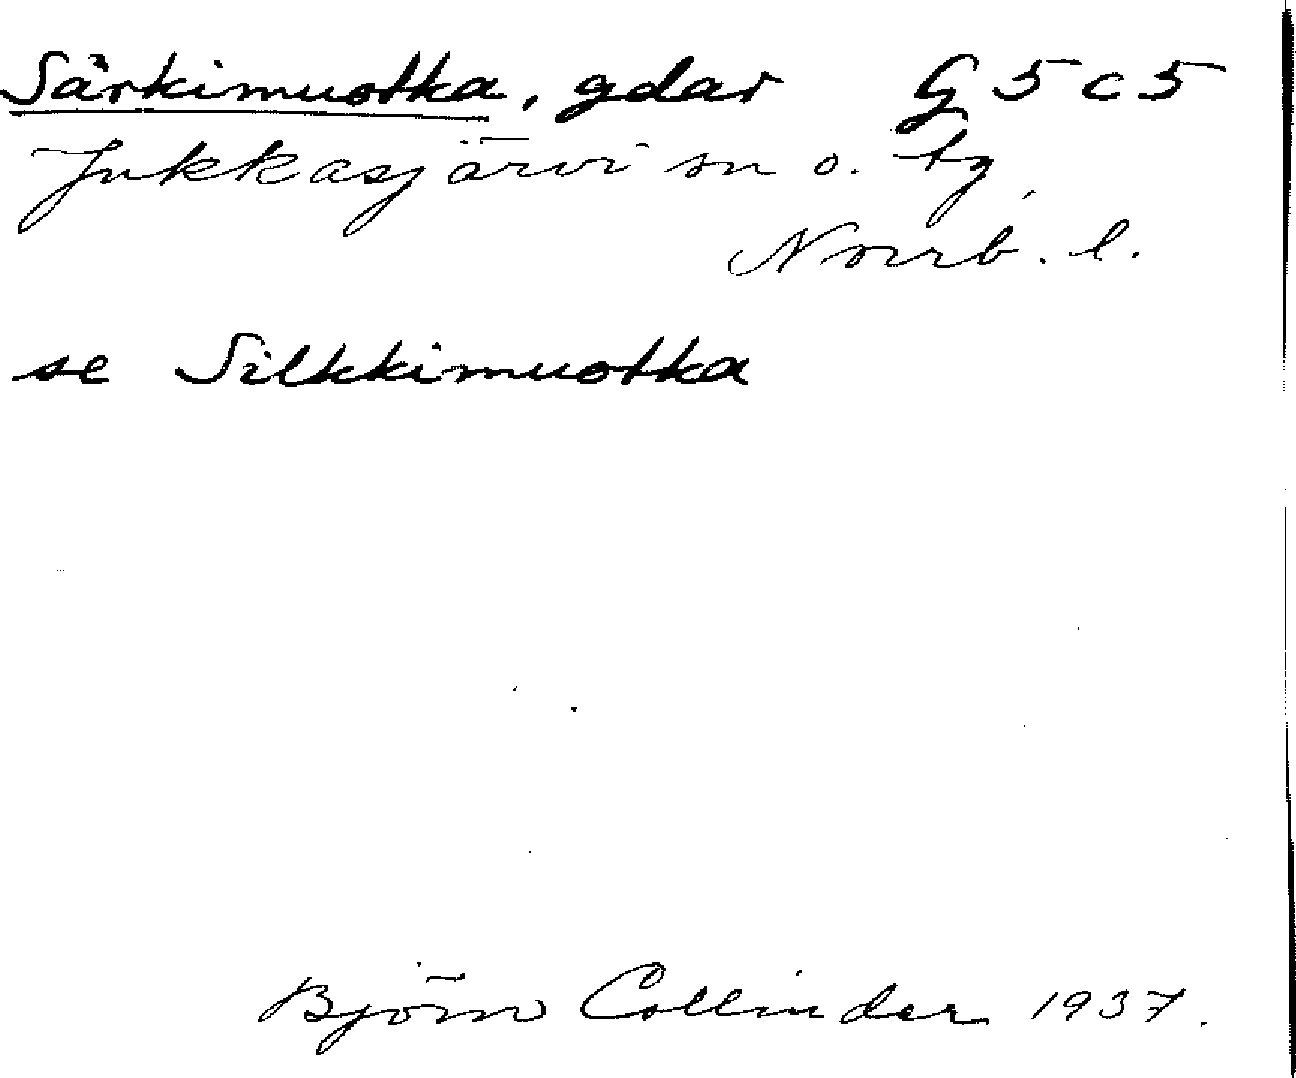 Särkimuotka, gdar G 5 c 5
Jukkasjärvi sn o. tg,
Norrb. l.
se Silkkimuotka
Björn Collinder 1937.